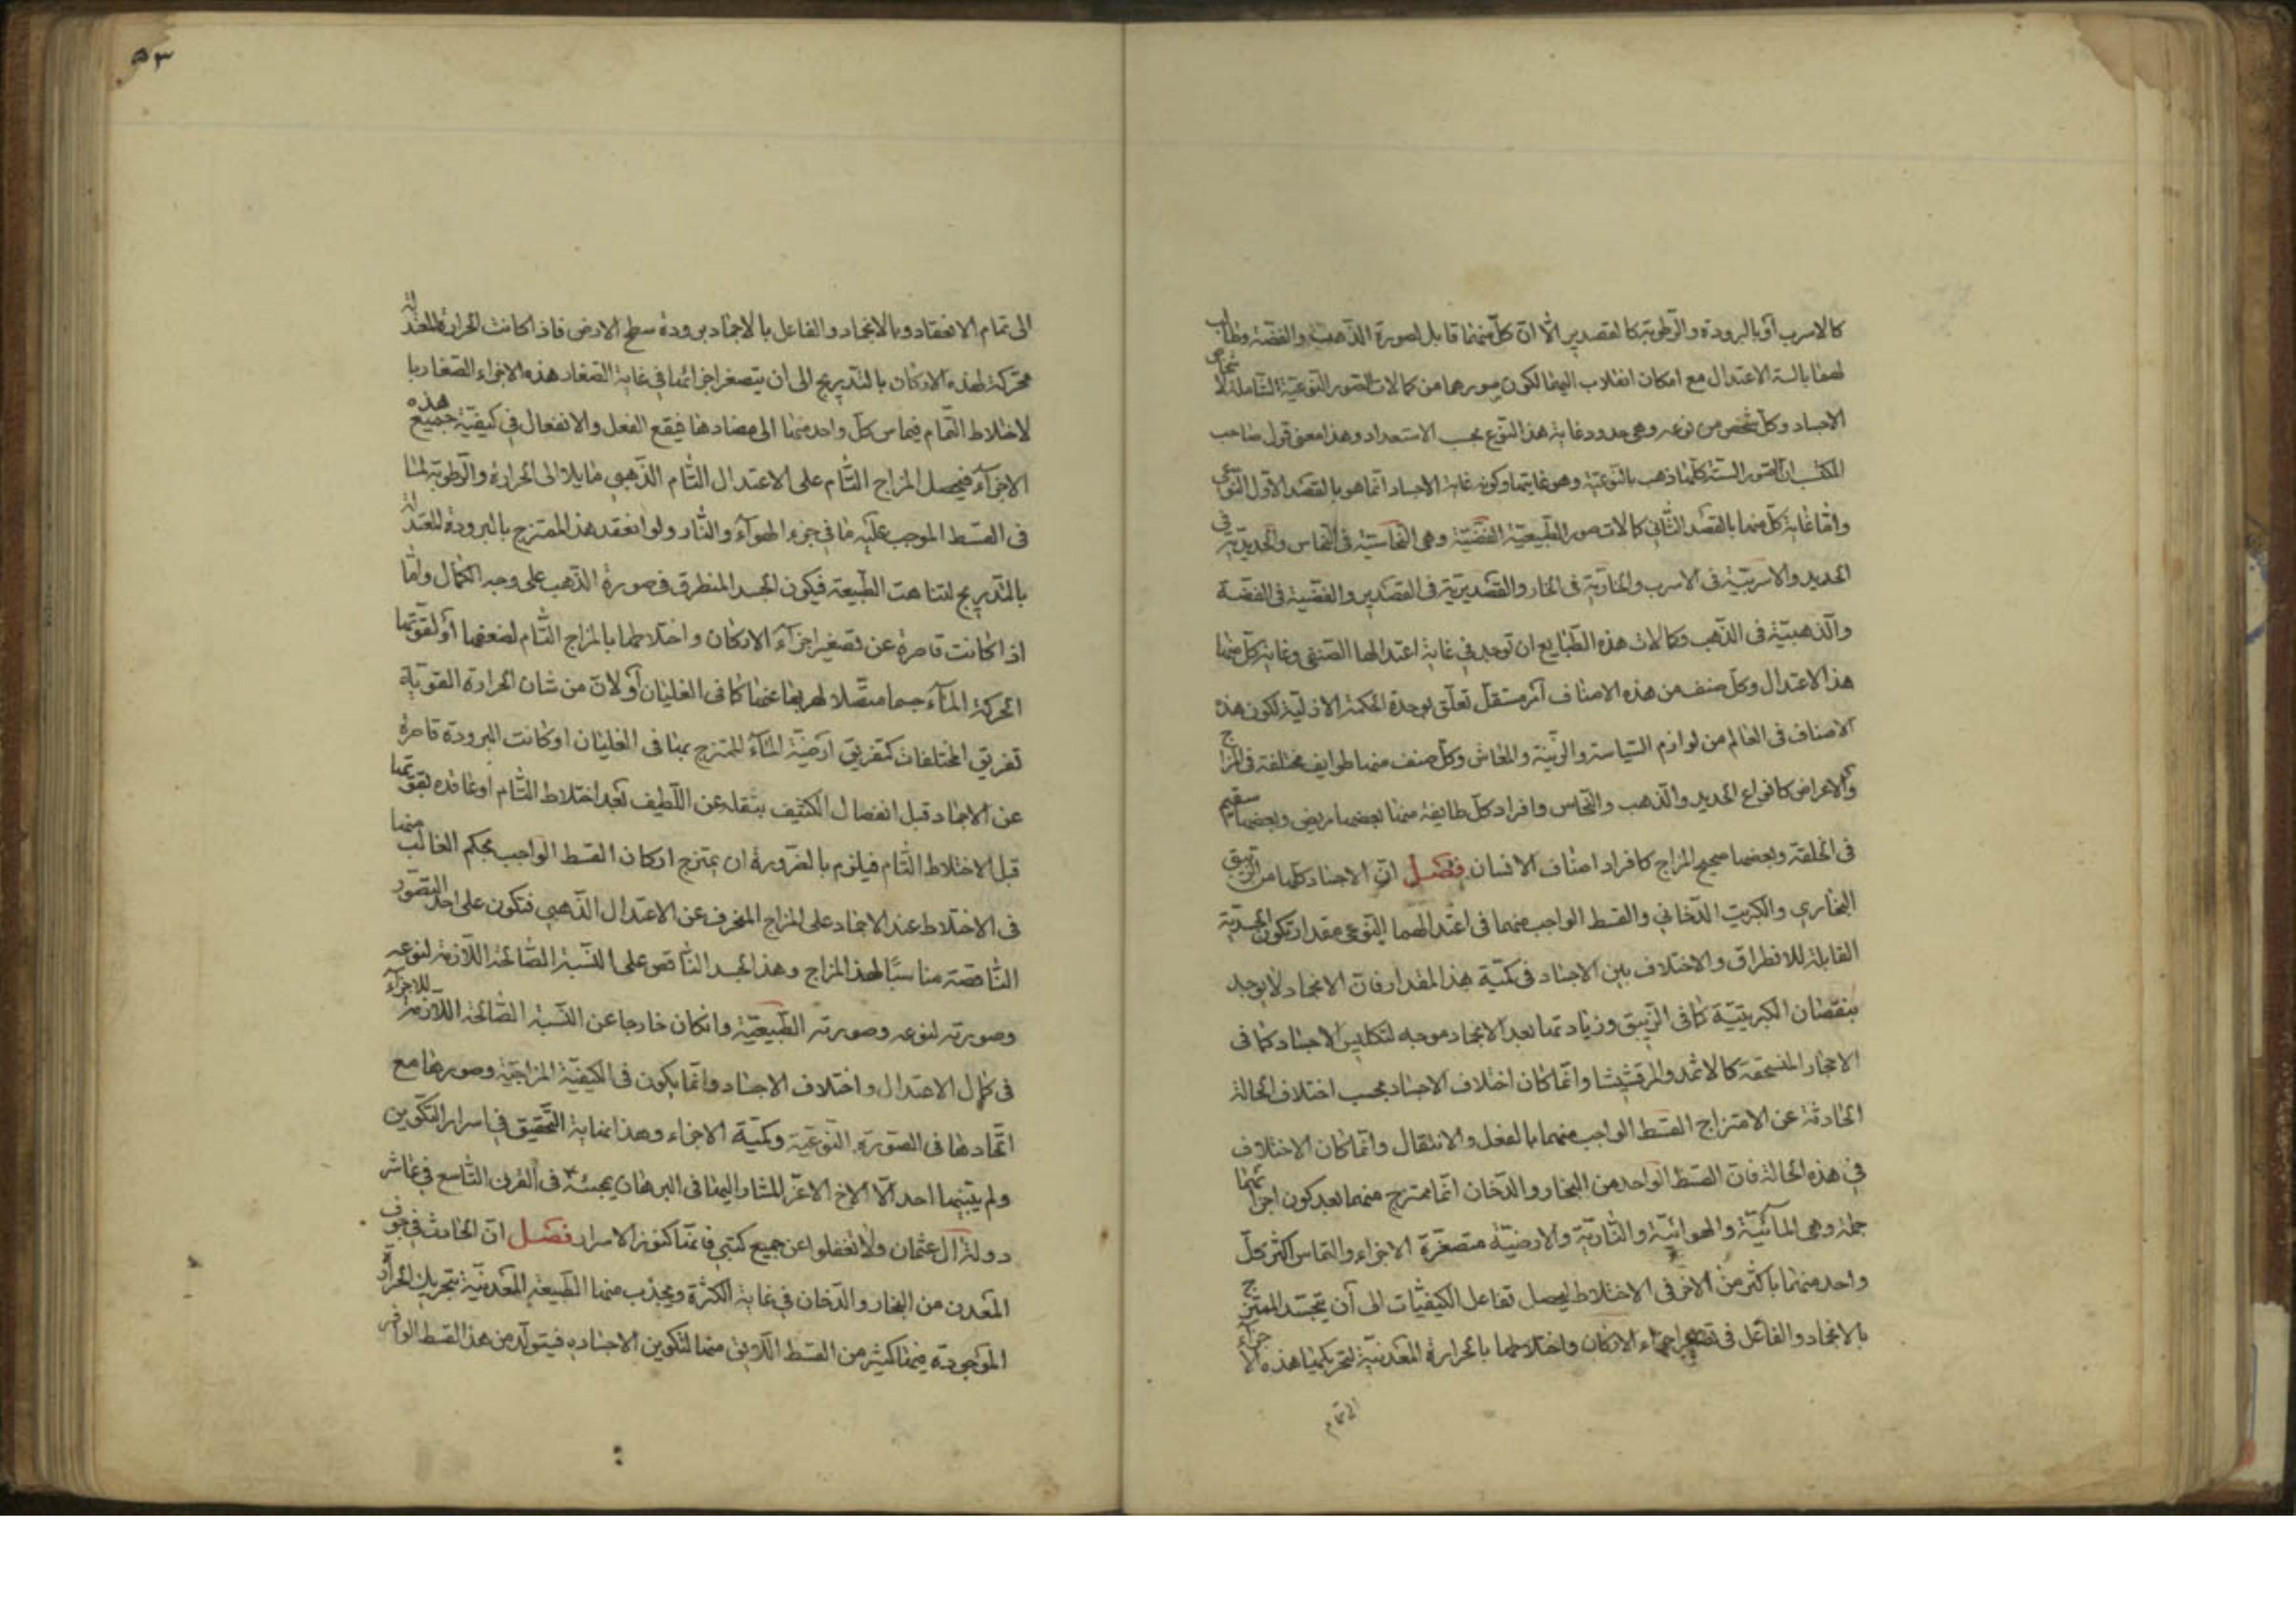 كالاسرب أو بالبرودة والرطوبة كالقصدير الا ان كل منهما قابل لصورة الذهب والفضة وطالب
لهما بالسنة الاعتدال مع امكان انقلاب اليهما لكون صورهما من كمالات الصور النوعية الشاملة لا شخاص
الاجساد وكل شخص من نوعه وهي حدود غاية هذا النوع بحسب الاستعداد وهذا معنى قول صاحب
المكتسب ان الصور الستة كلها ذهب بالنوعية وهو غايتها وكونه غاية الاجساد انما هو بالقصد الاول النوعي
واما غاية كل منهما بالقصد الثاني كمالات صور الطبيعية الفضية وهي النحاسية في النحاس والحديدية في
الحديد والاسربية في الاسرب والخارية في الخار والقصديرية في القصدير والفضية في الفضة
والذهبية في الذهب وكمالات هذه الطبايع ان توجد في غاية اعتدالها الصنفي وغاية كل منها
هذا الاعتدال وكل صنف من هذه الاصناف اثر مستقل تعلق بوحدة الحكمة الازلية لكون هذه
الاصناف في العالم من لوازم السياسة والزينة والمعاش وكل صنف منها طوايف مختلفة في المزاج
والاعراض كانواع الحديد والذهب والنحاس وافراد كل طايفة منها بعضها مريض وبعضها سقيم
في الخلقة وبعضها صحيح المزاج كافراد اصناف الانسان فصل ان الاجساد كلها من الزيبق
البخاري والكبريت الدخاني والقسط الواجب منهما في اعتدالهما النوعي مقدار تكون الجسدية
القابلة للانطراق والاختلاف بين الاجساد في كمية هذا المقدار فان الانجماد لا يوجد
بنقصان الكبريتية كما في الزيبق وزيادتها بعد الانجماد موجبه لتكليس الاجساد كما في
الاحجار المنسحقة كالاثمد والمرقشيشا وانما كان اختلاف الاجساد بحسب اختلاف الحالة
الحادثة عن الامتزاج القسط الواجب منهما بالفعل والانتقال وانما كان الاختلاف
في هذه الحالة فان القسط الواحد من البخار والدخان انما يمتزج منهما بعد كون اجزائهما
جملة وهي المائية والهوائية والنارية والارضية متصغرة الاجزاء والتماس اكثر كل
واحد منهما باكثر من الاخر في الاختلاط ليحصل تفاعل الكيفيات الى أن يتجسد الممتزج
بالانجماد والفاعل في تصغير اجزاء الاركان واختلاطها بالحرارة المعدنية لتحريكها هذه الاجزاء
الى تمام
٥٣
الى تمام الانعقاد وبالانجماد والفاعل بالاجماد برودة سطح الارض فاذا كانت الحرارة المعتدلة
محركة لهذه الاركان بالتدريج الى ان يتصغر اجزائها في غاية الصغار هذه الاجزاء الصغار با
لاختلاط التمام فيماس كل واحد منها الى مضادها فيقع الفعل والانفعال في كيفية جميع هذه
الاجزآء فيحصل المزاج التام على الاعتدال التام الذهبي مايلا الى الحرارة والرطوبة لما
في القسط الموجب عليه ما في جزء الهوآء والنار ولو انعقد هذا الممتزج بالبرودة المعتدلة
بالتدريج لتناهت الطبيعة فيكون الجسد المنطرق في صورة الذهب على وجه الكمال واما
اذا كانت قاصرة عن تصغير اجزآء الاركان واختلاطها بالمزاج التام لضعفها أو لقوتها
الحركة المآء جسما متصلا لهربها عنها كما في الغليان أو لان من شان الحرارة القوية
تفريق المختلفات كتفريق ارضية المآء الممتزج بها في الغليان او كانت البرودة قاصرة
عن الاجماد قبل انفصال الكثيف بثقله عن اللطيف بعد اختلاط التام او عاقده بقوتها
قبل الاختلاط التام فيلزم بالضرورة ان يمتزج اركان القسط الواجب بحكم الغالب منها
في الاختلاط عند الاجماد على المزاج المنحرف عن الاعتدال الذهبي فتكون على احد الصور
الناقصة مناسبًا لهذا المزاج وهذا الجسد الناقص على النسبة الصالحة اللازمة لنوعه
وصورته لنوعه وصورته الطبيعية وانكان خارجا عن النسبة الصالحة اللازمة للاجزآء
في كمال الاعتدال واختلاف الاجساد وانما يكون في الكيفية المزاجية وصورها مع
اتحادها في الصورة النوعية وكمية الاجزاء وهذا نهاية التحقيق في اسرار التكوين
ولم يبينها احد الا الاخ الاعز المشار اليها في البرهان بمجيئه في القرن التاسع في عاشر
دولة ال عثمان ولا تغفلوا عن جميع كتبي فانها كنوز الاسرار فصل ان الحادث في جوف
المعدن من البخار والدخان في غاية الكثرة ويجذب منها الطبيعة المعدنية بتحريك الحرارة
الموجودة فيها كثير من القسط اللايق منها لتكوين الاجساديه فيتولد من هذا القسط الوافر